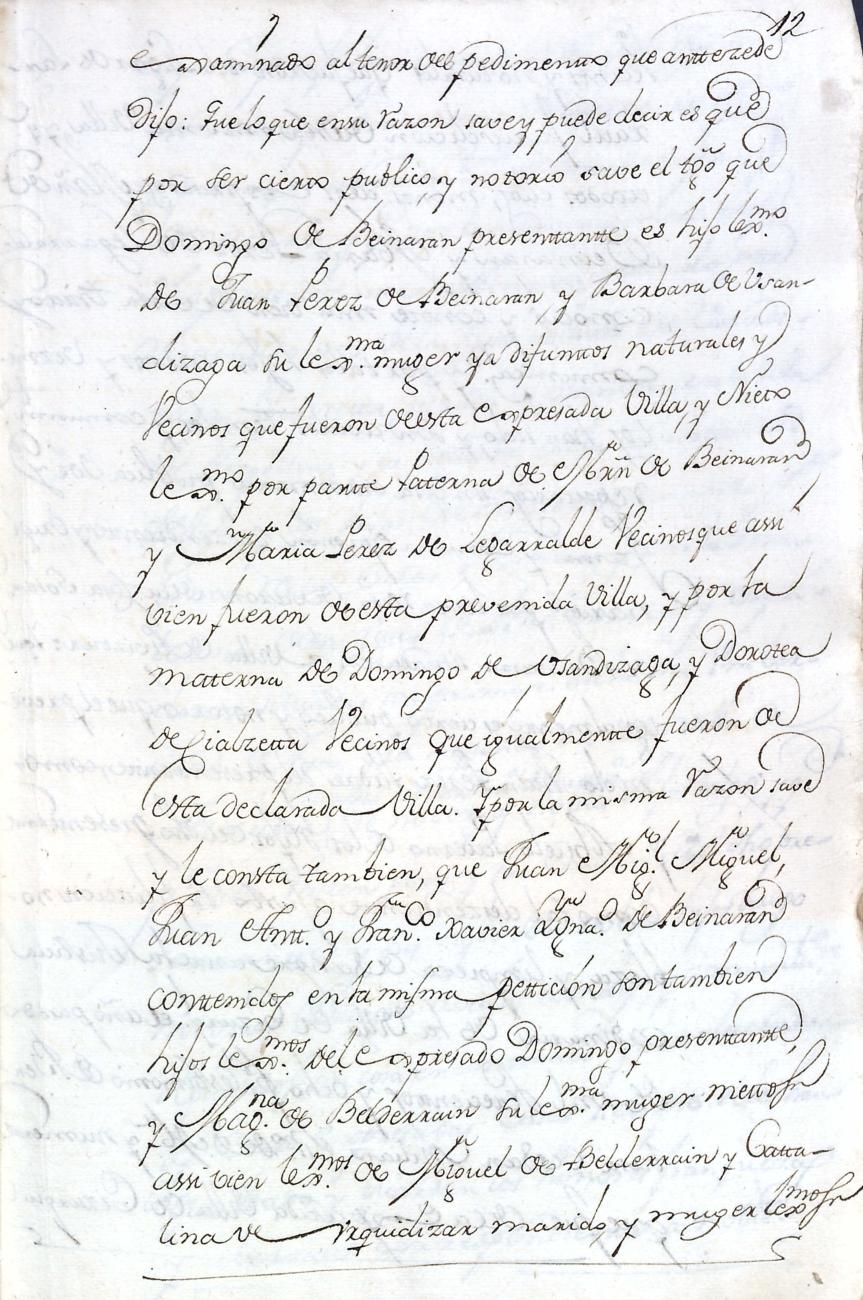 12
examinado al tenor del pedimento que anttezede
Dijo: Que lo que en su razon save y puede decir es que
por ser cierto publico y notorio save el tgô que
Domingo de Beinaran presenttantte es hijo lexmo.
de Juan Perez de Beinaran y Barbara de Vsan-
dizaga su lexma. muger ya difunttos naturales y
Vecinos que fueron de esta expresada Villa, y Nieto
lexmo. por partte Paterna de Mrñ de Beinaran
y Maria Perez de Legarralde Vecinos que assi
vien fueron de esta prevenida Villa, y por la
matterna de Domingo de Vsandizaga, y Dorotea
de Cialzetta Vecinos que igualmentte fueron de
esta declarada Villa. Y por la misma razon save
y le consta tambien, que Juan Migl. Miguel,
Juan Antt.o y Fran.co Xavier Ygna.o de Beinaran
conttenidos en la misma pettición son tambien
hijos lexmos. del expresado Domingo, presenttantte,
y Magna. de Belderrain su lexma. muger niettos
assi vien lexmos. de Miguel de Belderrain y Catta-
lina de Vrquidizar marido, y muger lexmos